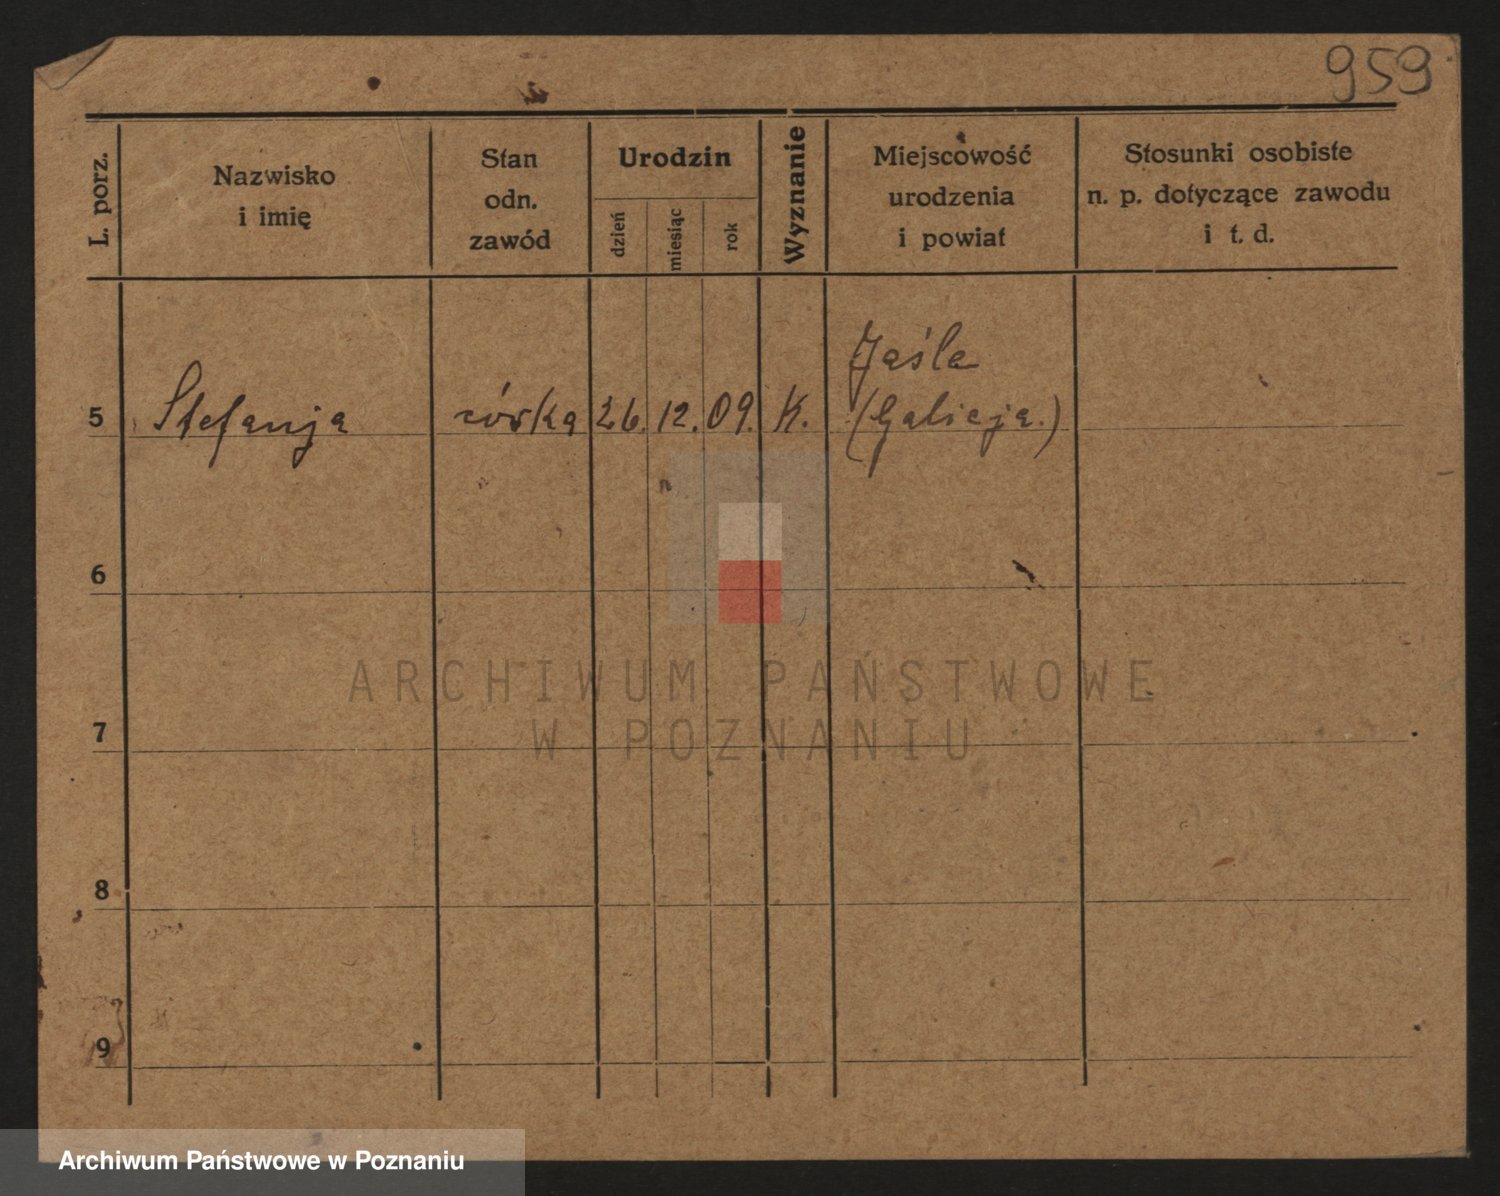 959
L. porz.
Nazwisko
i imię
Stan
odn.
zawód
Urodzin
dzień
miesiąc
rok
Wyznanie
Miejscowość
urodzenia
i powiat
Stosunki osobiste
n. p. dotyczące zawodu
i t. d.
5 Stefanja córka 26. 12. 09. K. Jaśla
(Galicja.)
6
7
8
9
ARCHIWUM PAŃSTWOWE
W POZNANIU
Archiwum Państwowe w Poznaniu